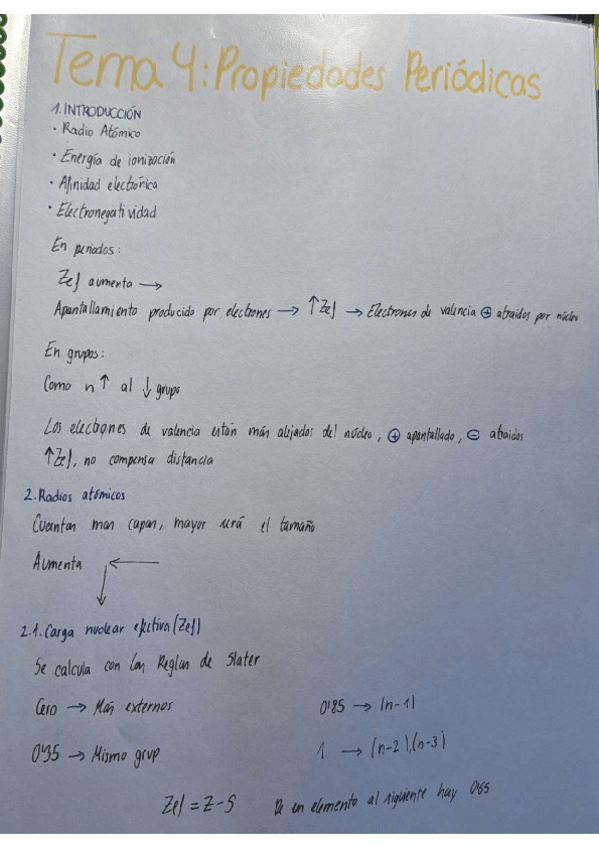 Tema 4: Propiedades Periódicas
1. INTRODUCCIÓN
· Radio Atómico
· Energía de ionización
· Afinidad electrónica
· Electronegatividad
En periodos:
Zef aumenta →
Apantallamiento producido por electrones → ↑Zef → Electrones de valencia ⊕ atraidos por núcleo
En grupos:
Como n↑ al ↓ grupo
Los electrones de valencia están más alejados del núcleo, ⊕ apantallado, ⊖ atraidos
↑Zef, no compensa distancia
2. Radios atómicos
Cuantas mas capas, mayor será el tamaño
Aumenta ← ↓
2.1. Carga nuclear efectiva (Zef)
Se calcula con las Reglas de Slater
Cero → Más externos 0'85 → (n-1)
0'35 → Mismo grup 1 → (n-2),(n-3)
Zef = Z-S De un elemento al siguiente hay 0'65